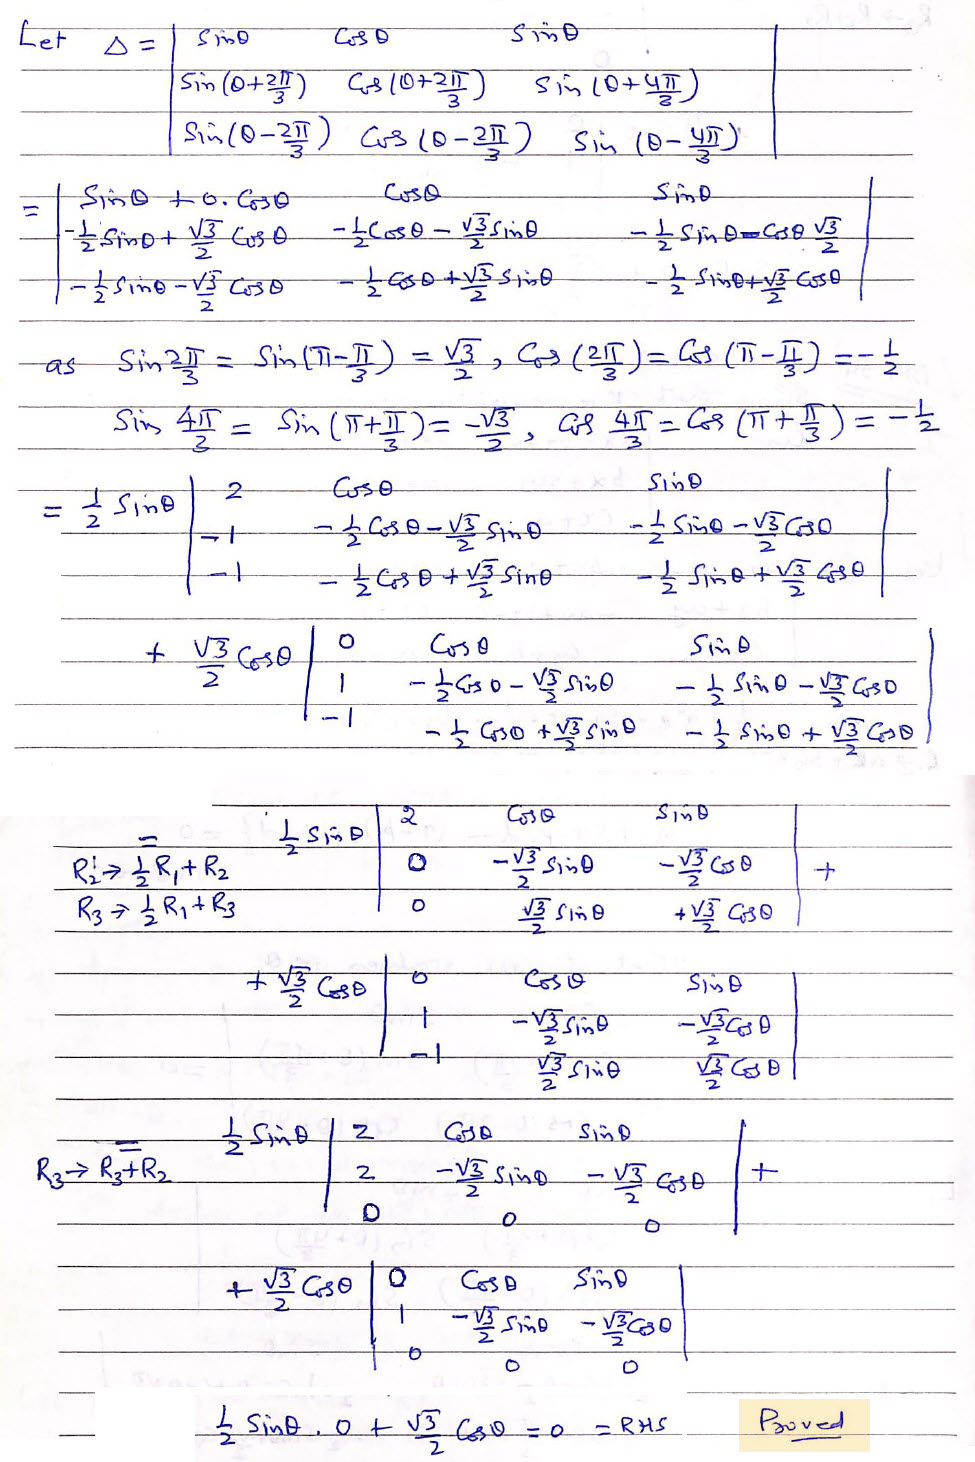 Let Δ = | Sinθ Cosθ Sinθ |
| Sin(θ+2π/3) Cos(θ+2π/3) Sin(θ+4π/3) |
| Sin(θ-2π/3) Cos(θ-2π/3) Sin(θ-4π/3) |
= | Sinθ + 0.Cosθ Cosθ Sinθ |
| -1/2 Sinθ + √3/2 Cosθ -1/2 Cosθ - √3/2 Sinθ -1/2 Sinθ - Cosθ √3/2 |
| -1/2 Sinθ - √3/2 Cosθ -1/2 Cosθ + √3/2 Sinθ -1/2 Sinθ + √3/2 Cosθ |
as Sin 2π/3 = Sin(π-π/3) = √3/2, Cos(2π/3) = Cos(π-π/3) = -1/2
Sin 4π/3 = Sin(π+π/3) = -√3/2, Cos 4π/3 = Cos(π+π/3) = -1/2
= 1/2 Sinθ | 2 Cosθ Sinθ |
| -1 -1/2 Cosθ - √3/2 Sinθ -1/2 Sinθ - √3/2 Cosθ |
| -1 -1/2 Cosθ + √3/2 Sinθ -1/2 Sinθ + √3/2 Cosθ |
+ √3/2 Cosθ | 0 Cosθ Sinθ |
| 1 -1/2 Cosθ - √3/2 Sinθ -1/2 Sinθ - √3/2 Cosθ |
| -1 -1/2 Cosθ + √3/2 Sinθ -1/2 Sinθ + √3/2 Cosθ |
= 1/2 Sinθ | 2 Cosθ Sinθ |
R2→ 1/2 R1+R2 | 0 -√3/2 Sinθ -√3/2 Cosθ | +
R3→ 1/2 R1+R3 | 0 √3/2 Sinθ +√3/2 Cosθ |
+ √3/2 Cosθ | 0 Cosθ Sinθ |
| 1 -√3/2 Sinθ -√3/2 Cosθ |
| -1 √3/2 Sinθ √3/2 Cosθ |
= 1/2 Sinθ | 2 Cosθ Sinθ |
R3→ R3+R2 | 2 -√3/2 Sinθ -√3/2 Cosθ | +
| 0 0 0 |
+ √3/2 Cosθ | 0 Cosθ Sinθ |
| 1 -√3/2 Sinθ -√3/2 Cosθ |
| 0 0 0 |
1/2 Sinθ . 0 + √3/2 Cosθ = 0 = RHS Proved